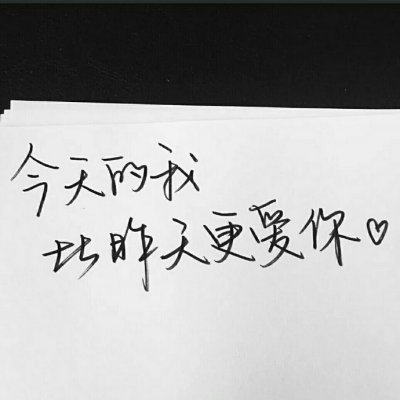 今天的我
比昨天更爱你♡